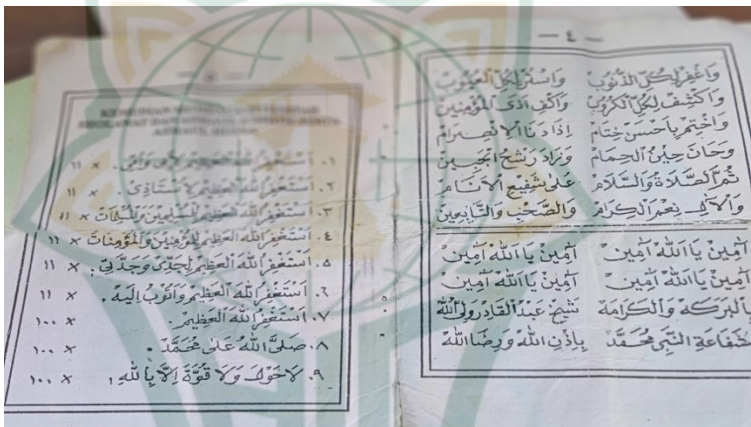 — ٤ —
وَاغْفِرْ لِكُلِّ الذُّنُوْبِ وَاسْتُرْ لِكُلِّ الْعُيُوْبِ
وَاكْشِفْ لِكُلِّ الْكُرُوْبِ وَاكْفِ اَذَى الْمُؤْذِيِيْنَ
وَاخْتِمْ بِاَحْسَنْ خِتَامْ اِذَا دَنَا الْاِنْصِرَامْ
وَحَانَ حِيْنُ الْحِمَامْ وَزَادَ رَشْحُ الْجَبِيْنِ
ثُمَّ الصَّلَاةُ وَالسَّلَامْ عَلٰى شَفِيْعِ الْاَنَامْ
وَالْاٰلِ نِعْمَ الْكِرَامْ وَالصَّحْبِ وَالتَّابِعِيْنَ
اٰمِيْنْ يَا اَللّٰهْ اٰمِيْنْ اٰمِيْنْ يَا اَللّٰهْ اٰمِيْنْ
اٰمِيْنْ يَا اَللّٰهْ اٰمِيْنْ اٰمِيْنْ يَا اَللّٰهْ اٰمِيْنْ
اَلْبَرَكَهْ وَالْكَرَامَهْ شَيْخْ عَبْدُ الْقَادِرْ وَلِيُّ اللّٰهْ
شَفَاعَةِ النَّبِيْ مُحَمَّدْ بِاِذْنِ اللّٰهْ وَرِضَا اللّٰهْ
١. اَسْتَغْفِرُ اللّٰهَ الْعَظِيْمَ لِاَبِيْ وَاُمِّيْ. × ١١
٢. اَسْتَغْفِرُ اللّٰهَ الْعَظِيْمَ لِاُسْتَاذِيْ. × ١١
٣. اَسْتَغْفِرُ اللّٰهَ الْعَظِيْمَ لِلْمُسْلِمِيْنَ وَالْمُسْلِمَاتْ × ١١
٤. اَسْتَغْفِرُ اللّٰهَ الْعَظِيْمَ لِلْمُؤْمِنِيْنَ وَالْمُؤْمِنَاتْ × ١١
٥. اَسْتَغْفِرُ اللّٰهَ الْعَظِيْمَ لِجَدِّيْ وَجَدَّتِيْ. × ١١
٦. اَسْتَغْفِرُ اللّٰهَ الْعَظِيْمَ وَاَتُوْبُ اِلَيْهِ. × ١١
٧. اَسْتَغْفِرُ اللّٰهَ الْعَظِيْمِ. × ١٠٠
٨. صَلَّى اللّٰهُ عَلٰى مُحَمَّدْ. × ١٠٠
٩. لَاحَوْلَ وَلَا قُوَّةَ اِلَّا بِاللّٰهِ. × ١٠٠